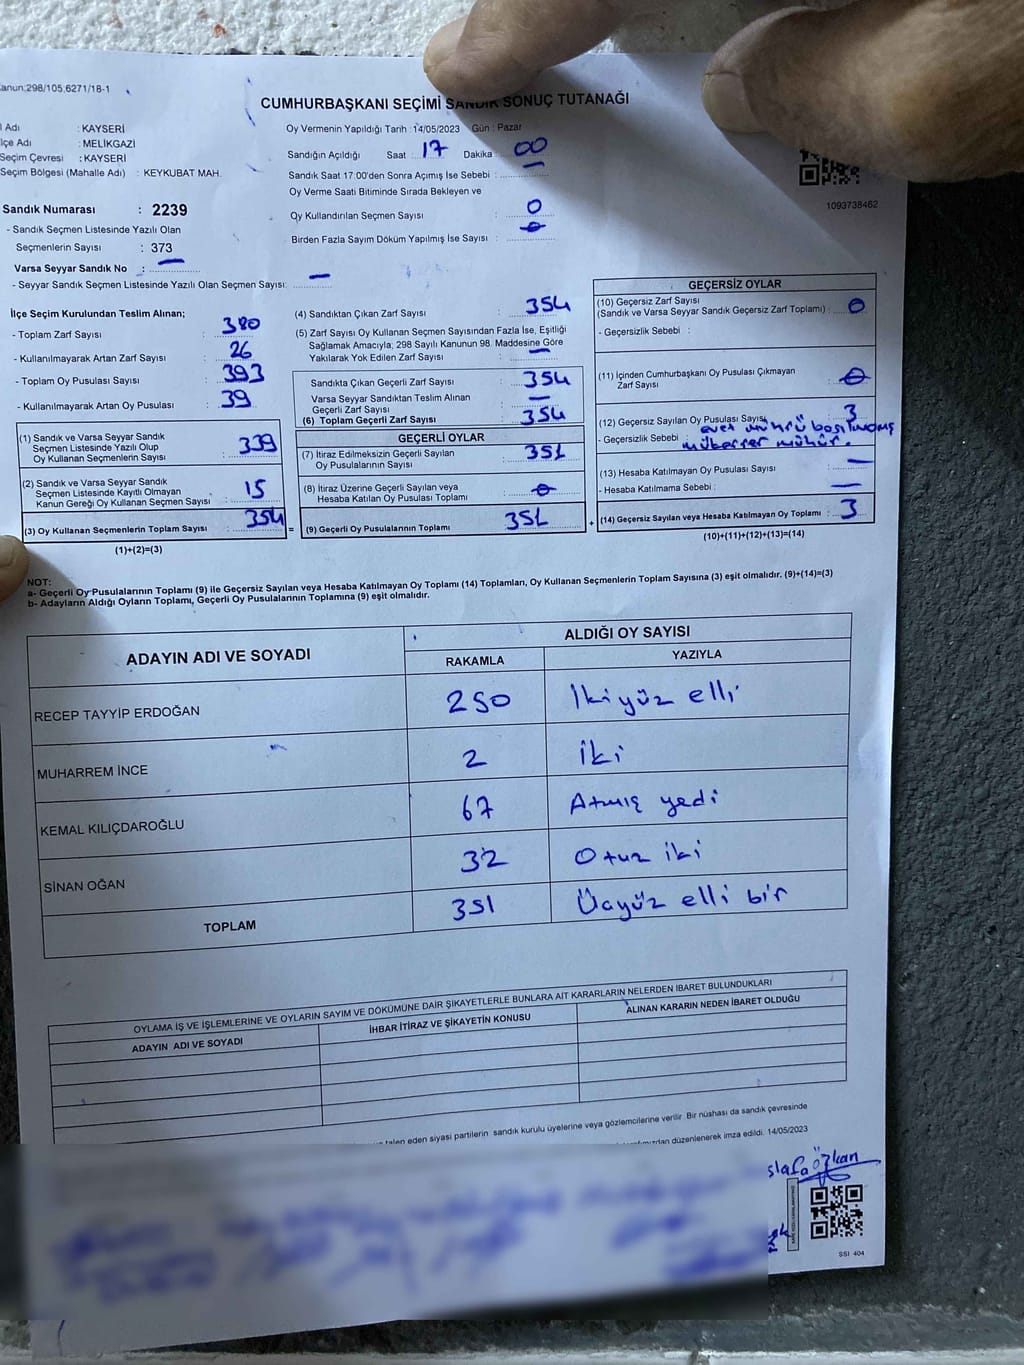 Kanun:298/105,6271/18-1
CUMHURBAŞKANI SEÇİMİ SANDIK SONUÇ TUTANAĞI
İl Adı : KAYSERİ
İlçe Adı : MELİKGAZİ
Seçim Çevresi : KAYSERİ
Seçim Bölgesi (Mahalle Adı) : KEYKUBAT MAH.
Sandık Numarası : 2239
- Sandık Seçmen Listesinde Yazılı Olan
Seçmenlerin Sayısı : 373
Varsa Seyyar Sandık No : —
- Seyyar Sandık Seçmen Listesinde Yazılı Olan Seçmen Sayısı: —
Oy Vermenin Yapıldığı Tarih : 14/05/2023 Gün : Pazar
Sandığın Açıldığı Saat : 17 Dakika : 00
Sandık Saat 17.00'den Sonra Açımış İse Sebebi : —
Oy Verme Saati Bitiminde Sırada Bekleyen ve
Oy Kullandırılan Seçmen Sayısı : 0
Birden Fazla Sayım Döküm Yapılmış İse Sayısı : 0
1093738462
İlçe Seçim Kurulundan Teslim Alınan;
- Toplam Zarf Sayısı : 380
- Kullanılmayarak Artan Zarf Sayısı : 26
- Toplam Oy Pusulası Sayısı : 393
- Kullanılmayarak Artan Oy Pusulası : 39
(1) Sandık ve Varsa Seyyar Sandık
Seçmen Listesinde Yazılı Olup
Oy Kullanan Seçmenlerin Sayısı : 339
(2) Sandık ve Varsa Seyyar Sandık
Seçmen Listesinde Kayıtlı Olmayan
Kanun Gereği Oy Kullanan Seçmen Sayısı : 15
(3) Oy Kullanan Seçmenlerin Toplam Sayısı : 354
(1)+(2)=(3)
(4) Sandıktan Çıkan Zarf Sayısı : 354
(5) Zarf Sayısı Oy Kullanan Seçmen Sayısından Fazla İse, Eşitliği
Sağlamak Amacıyla; 298 Sayılı Kanunun 98. Maddesine Göre
Yakılarak Yok Edilen Zarf Sayısı : —
Sandıkta Çıkan Geçerli Zarf Sayısı : 354
Varsa Seyyar Sandıktan Teslim Alınan
Geçerli Zarf Sayısı : —
(6) Toplam Geçerli Zarf Sayısı : 354
GEÇERLİ OYLAR
(7) İtiraz Edilmeksizin Geçerli Sayılan
Oy Pusulalarının Sayısı : 351
(8) İtiraz Üzerine Geçerli Sayılan veya
Hesaba Katılan Oy Pusulası Toplamı : 0
= (9) Geçerli Oy Pusulalarının Toplamı : 351
GEÇERSİZ OYLAR
(10) Geçersiz Zarf Sayısı
(Sandık ve Varsa Seyyar Sandık Geçersiz Zarf Toplamı) : 0
- Geçersizlik Sebebi :
(11) İçinden Cumhurbaşkanı Oy Pusulası Çıkmayan
Zarf Sayısı : 0
(12) Geçersiz Sayılan Oy Pusulası Sayısı : 3
- Geçersizlik Sebebi : evet mührü basılmamış
mükerrer mühür.
(13) Hesaba Katılmayan Oy Pusulası Sayısı : —
- Hesaba Katılmama Sebebi : —
+ (14) Geçersiz Sayılan veya Hesaba Katılmayan Oy Toplamı : 3
(10)+(11)+(12)+(13)=(14)
NOT:
a- Geçerli Oy Pusulalarının Toplamı (9) ile Geçersiz Sayılan veya Hesaba Katılmayan Oy Toplamı (14) Toplamları, Oy Kullanan Seçmenlerin Toplam Sayısına (3) eşit olmalıdır. (9)+(14)=(3)
b- Adayların Aldığı Oyların Toplamı, Geçerli Oy Pusulalarının Toplamına (9) eşit olmalıdır.
ADAYIN ADI VE SOYADI
ALDIĞI OY SAYISI
RAKAMLA YAZIYLA
RECEP TAYYİP ERDOĞAN 250 İkiyüz elli
MUHARREM İNCE 2 iki
KEMAL KILIÇDAROĞLU 67 Atmış yedi
SİNAN OĞAN 32 Otuz iki
TOPLAM 351 Üçyüz elli bir
OYLAMA İŞ VE İŞLEMLERİNE VE OYLARIN SAYIM VE DÖKÜMÜNE DAİR ŞİKAYETLERLE BUNLARA AİT KARARLARIN NELERDEN İBARET BULUNDUKLARI
ADAYIN ADI VE SOYADI İHBAR İTİRAZ VE ŞİKAYETİN KONUSU ALINAN KARARIN NEDEN İBARET OLDUĞU
talep eden siyasi partilerin sandık kurulu üyelerine veya gözlemcilerine verilir. Bir nüshası da sandık çevresinde
düzenlenerek imza edildi. 14/05/2023
Özkan
SSI 404